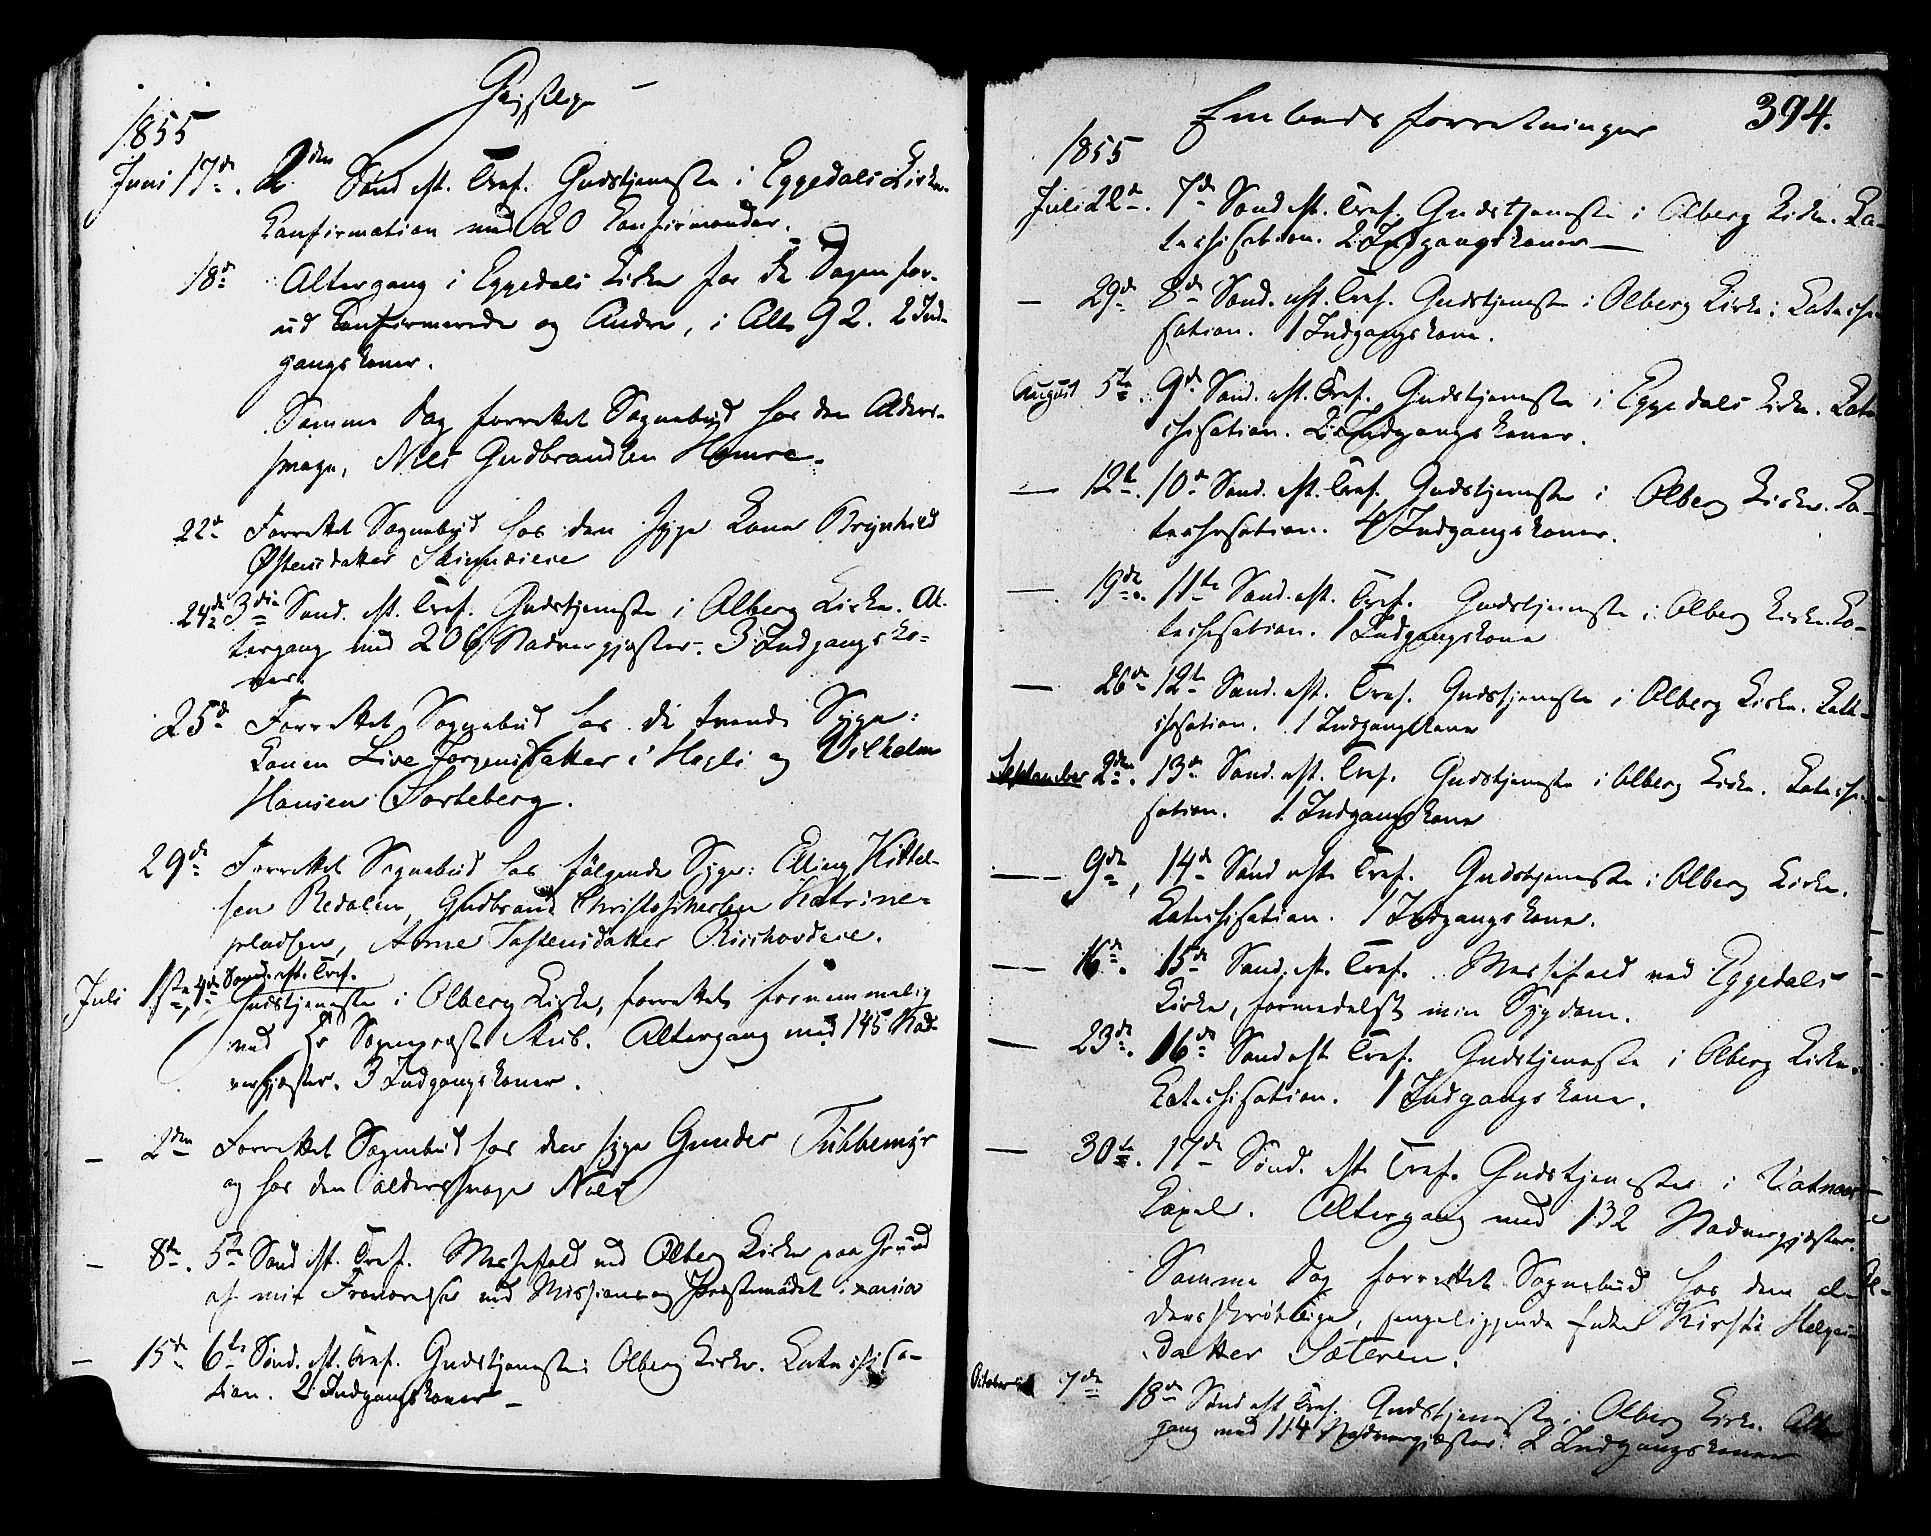 Geistlige
1855
Juni 17de. 2den Sønd. eft. Tref. Gudstjeneste i Eggedals Kirke.
Confirmation med 20 Confirmander.
18de Altergang i Eggedals Kirke for de Dagen for-
ud Confirmerede og Andre, i Alt 92. 2 Ind-
gangskoner.
Samme Dag forrettet Sognebud hos den Alders-
svage, Niels Gudbrandsen Hamre.
22de Forrettet Sognebud hos den syge Kone Brynhild
Østensdatter
24de 3die Sønd. eft. Tref. Gudstjeneste i Olberg Kirke. Al-
tergang med 206 Nadvergjæster. 3 Indgangsko-
ner.
25de Forrettet Sognebud hos de tvende Syge:
Konen Live Jørgensdatter i Hagli og Vilhelm
Hansen Sorteberg.
29de Forrettet Sognebud hos følgende Syge: Elling Kittel-
sen Redalen, Gudbrand Christophersen Katrine-
pladsen, Arne Tostensdatter
Juli 1ste, 4de Sønd. eft. Tref.
Gudstjeneste i Olberg Kirke, forrettet fornemmelig
ved Hr Sognepræst Aub. Altergang med 145 Nad-
vergjæster. 3 Indgangskoner.
— 2den Forrettet Sognebud hos den syge Gunder Tubbemyr
og hos den alderssvage Niels
— 8de. 5te Sønd. eft. Tref. Messefald ved Olberg Kirke paa Grund
af min Fraværelse ved Missions og Præstemødet i Xania
— 15de 6te Sønd. eft. Tref. Gudstjeneste i Olberg Kirke. Catechisa-
tion. 2 Indgangskoner —
Embedsforretninger 394.
1855
Juli 22de. 7de Sønd. eft. Tref. Gudstjeneste i Olberg Kirke. Ca-
techisation. 2 Indgangskoner —
— 29de 8de Sønd. eft. Tref. Gudstjeneste i Olberg Kirke. Catechi-
sation. 1 Indgangskone.
August 5te. 9de Sønd. eft. Tref. Gudstjeneste i Eggedals Kirke. Cate
chisation. 2 Indgangskoner.
— 12te. 10de Sønd. eft. Tref. Gudstjeneste i Olberg Kirke. Ca-
techisation. 4 Indgangskoner.
— 19de. 11te Sønd. eft. Tref. Gudstjeneste i Olberg Kirke. Ca-
techisation. 1 Indgangskone
— 26de 12te Sønd. eft. Tref. Gudstjeneste i Olberg Kirke. Cate-
chisation. 1 Indgangskone
September 2den. 13de Sønd. eft. Tref. Gudstjeneste i Olberg Kirke. Catechi-
sation. 1 Indgangskone
— 9de, 14de Sønd efte Tref. Gudstjeneste i Olberg Kirke.
Catechisation. 1 Indgangskone.
— 16de. 15de Sønd. eft. Tref. Messefald ved Eggedals
Kirke, formedelst min Sygdom.
— 23de. 16de Sønd eft Tref. Gudstjeneste i Olberg Kirke.
Catechisation. 1 Indgangskone.
— 30te. 17de Sønd. eft. Tref. Gudstjeneste i Vatnaas
Capel. Altergang med 132 Nadvergjæster.
Samme Dag forrettet Sognebud hos den al-
dersskrøbelige, sengeliggende Enke Kirsti Helges-
datter Sæteren.
October 7de 18de Sønd eft Tref. Gudstjeneste i Olberg Kirke. Alter
gang med 114 Nadvergjæster. 2 Indgangskoner